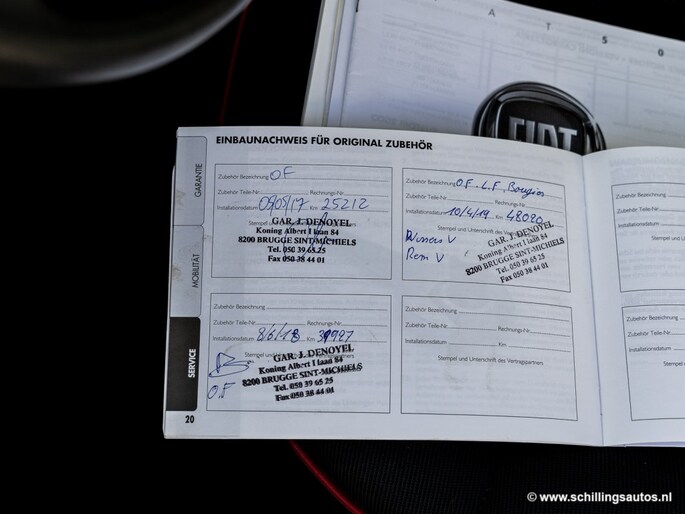 A T S O
FIAT
EINBAUNACHWEIS FÜR ORIGINAL ZUBEHÖR
GARANTIE
MOBILITÄT
SERVICE
Zubehör Bezeichnung O.F
Zubehör Teile-Nr. Rechnungs-Nr.
Installationsdatum Km 25212
Stempel und
GAR. J. DENOYEL
Koning Albert I laan 84
8200 BRUGGE SINT-MICHIELS
Tel. 050 39 65 25
Fax 050 38 44 01
Zubehör Bezeichnung O.F - L.F, Bougies
Zubehör Teile-Nr. Rechnungs-Nr.
Installationsdatum 10/4/19 Km 48020
Stempel und Unterschrift des
Rem V
GAR. J. DENOYEL
Koning Albert I laan 84
8200 BRUGGE SINT-MICHIELS
Tel. 050 39 65 25
Fax 050 38 44 01
Zubehör Bezeichnung
Zubehör Teile-Nr. Rechnungs-Nr.
Installationsdatum 8/6/18 Km
Stempel und
GAR. J. DENOYEL
Koning Albert I laan 84
8200 BRUGGE SINT-MICHIELS
Tel. 050 39 65 25
Fax 050 38 44 01
O.F
Zubehör Bezeichnung
Zubehör Teile-Nr. Rechnungs-Nr.
Installationsdatum Km
Stempel und Unterschrift des Vertragspartners
Zubehör Bezeichnung
Zubehör Teile-Nr.
Installationsdatum
Stempel
Zubehör Bezeichnung
Zubehör Teile-Nr.
Installationsdatum
Stempel
20
© www.schillingsautos.nl